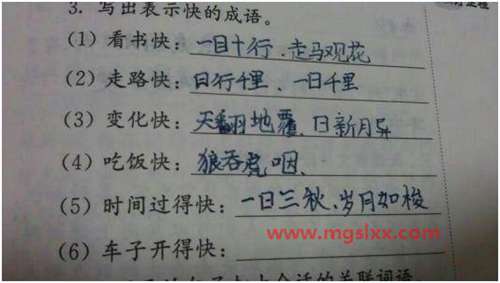 3. 写出表示快的成语。
(1) 看书快：一目十行、走马观花
(2) 走路快：日行千里、一日千里
(3) 变化快：天翻地覆、日新月异
(4) 吃饭快：狼吞虎咽、
(5) 时间过得快：一日三秋、岁月如梭
www.mgslxx.com
(6) 车子开得快：